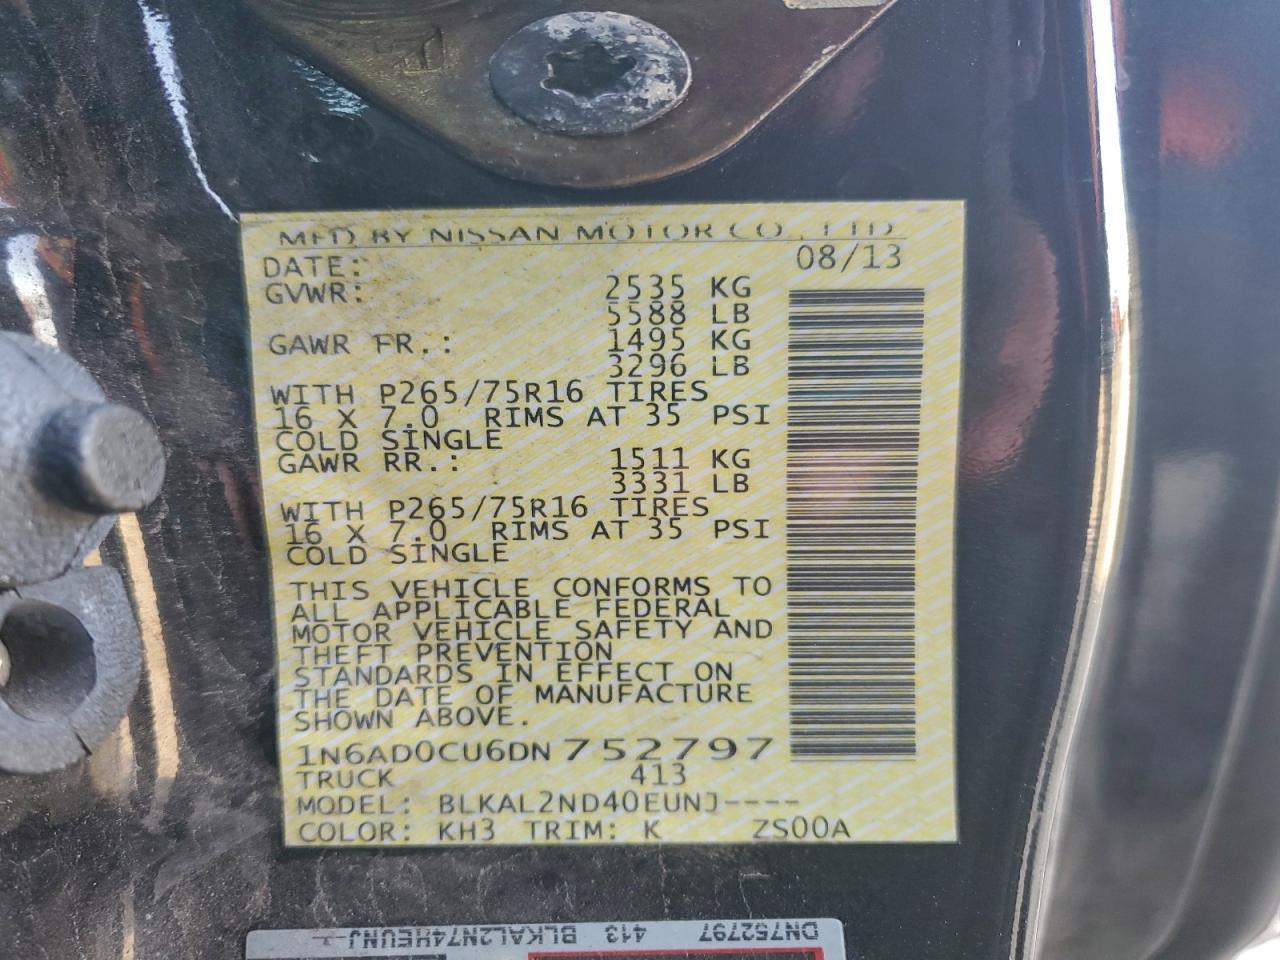 MFD BY NISSAN MOTOR CO., LTD
DATE: 08/13
GVWR: 2535 KG
5588 LB
GAWR FR.: 1495 KG
3296 LB
WITH P265/75R16 TIRES
16 X 7.0 RIMS AT 35 PSI
COLD SINGLE
GAWR RR.: 1511 KG
3331 LB
WITH P265/75R16 TIRES
16 X 7.0 RIMS AT 35 PSI
COLD SINGLE
THIS VEHICLE CONFORMS TO
ALL APPLICABLE FEDERAL
MOTOR VEHICLE SAFETY AND
THEFT PREVENTION
STANDARDS IN EFFECT ON
THE DATE OF MANUFACTURE
SHOWN ABOVE.
1N6AD0CU6DN752797
TRUCK 413
MODEL: BLKAL2ND40EUNJ----
COLOR: KH3 TRIM: K ZS00A
DN752797 413 BLKAL2N74HEUNJ